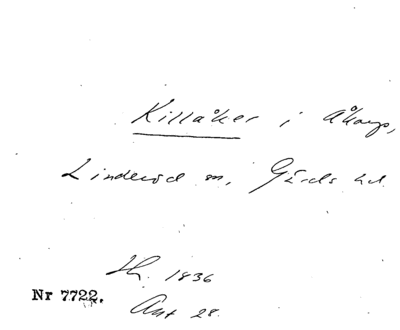 Killåker i Åkarp,
Linderöd m, Gärds hd.
1836
Nr 7722.
Akt 28.